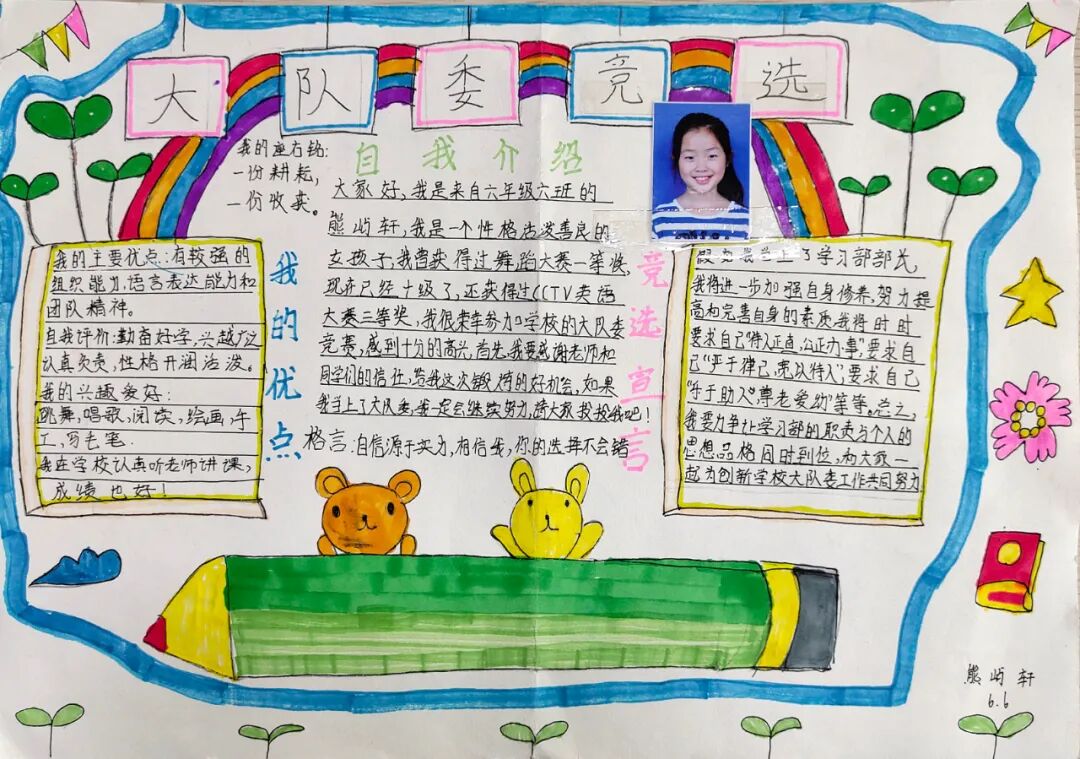 大队委竞选
我的座右铭:
一份耕耘,
一份收获。
自我介绍
大家好,我是来自六年级六班的
熊屿轩,我是一个性格活泼善良的
女孩子,我曾获得过舞蹈大赛一等奖,
现在已经十级了,还获得过CCTV英语
大赛三等奖,我很荣幸参加学校的大队委
竞赛,感到十分的高兴,首先,我要感谢老师和
同学们的信任,给我这次锻炼的好机会,如果
我当上了大队委,我一定会继续努力,请大家投投我吧!
格言:自信源于实力,有相信我,你的选择不会错
我的优点
我的主要优点:有较强的
组织能力,语言表达能力和
团队精神。
自我评价:勤奋好学,兴趣广泛
认真负责,性格开涸活泼。
我的兴趣爱好:
跳舞,唱歌,阅读,绘画,手
工,写毛笔.
我在学校认真听老师讲课,
成绩也好!
竞选宣言
了学习部部长,
我将进一步加强自身修养,努力提
高和完善自身的素质,我将时时
要求自己"待人正直,公正办事",要求自
己"严于律己,宽以待人",要求自己
"乐于助人,尊老爱幼"等等。总之,
我要力争让学习部的职责与个人的
思想品格同时到位,和大家一
起为创新学校大队委工作共同努力
熊屿轩
6.6